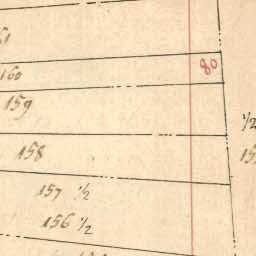 160
80
159
1/2
158
157 1/2
156 1/2